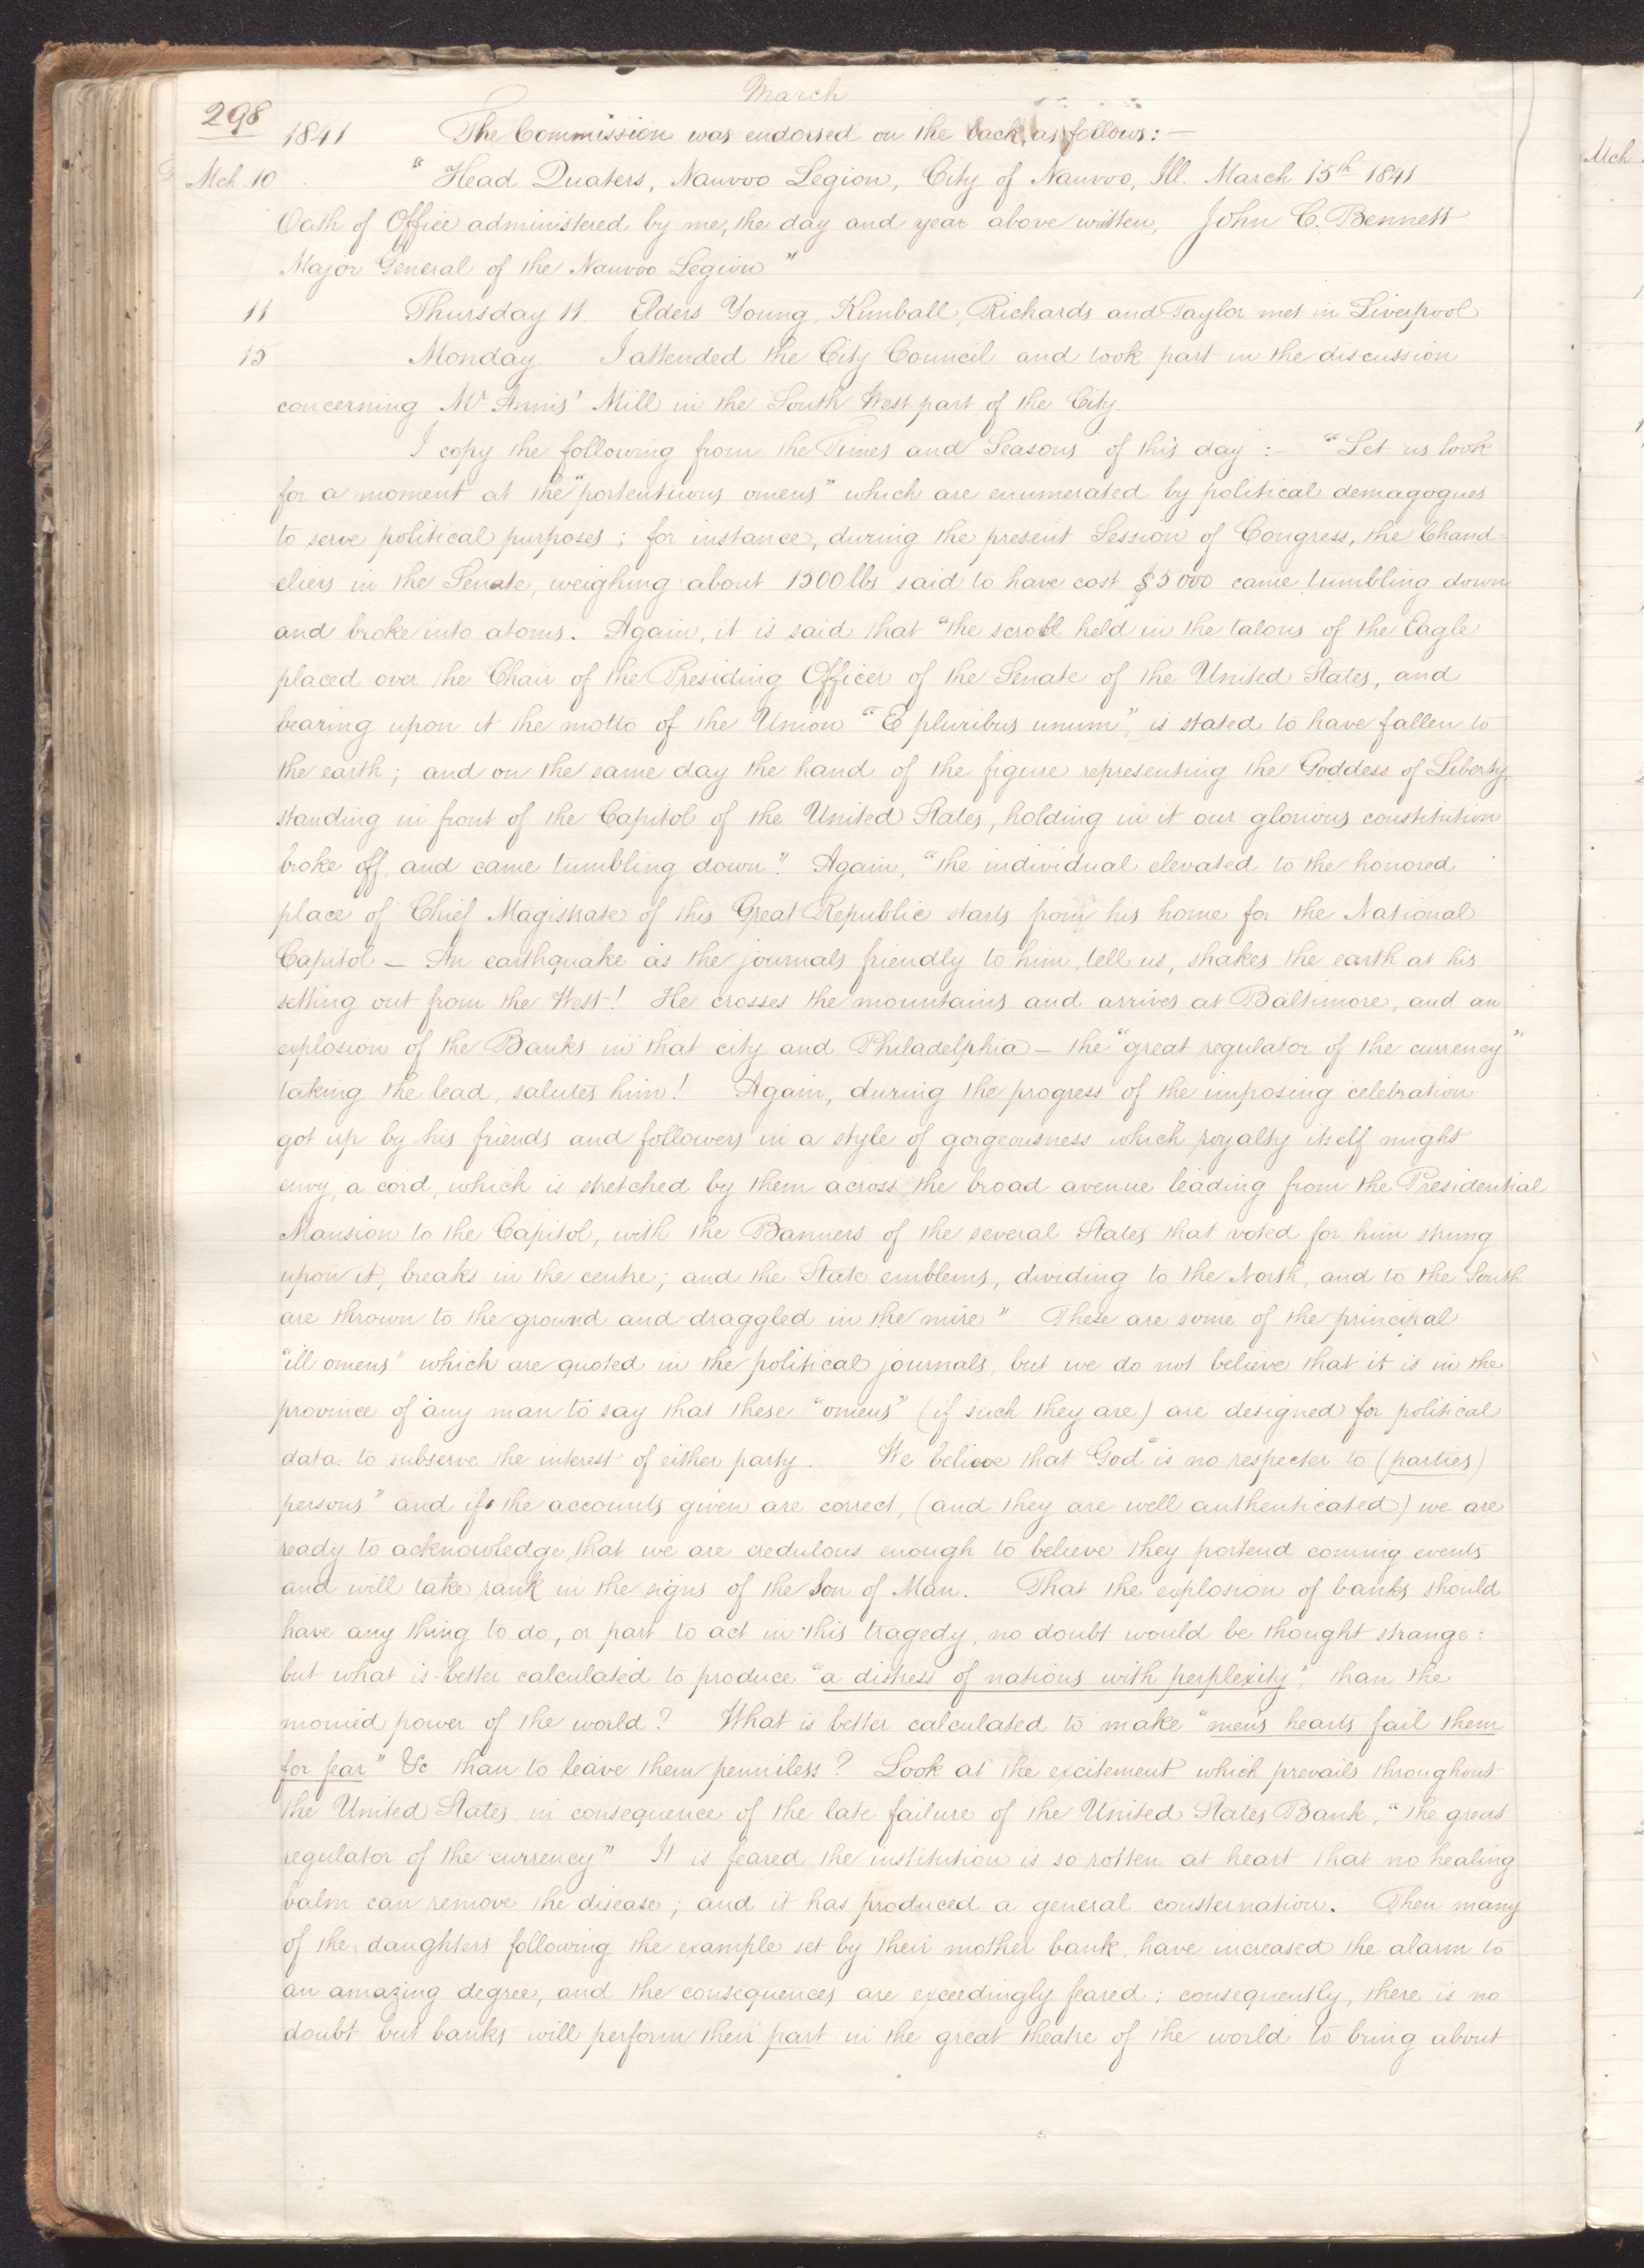 March
298 1841 The Commission was endorsed on the back, as follows:—
Mch 10 "Head Quaters, Nauvoo Legion, City of Nauvoo, Ill. March 15th 1841
Oath of Office administered by me, the day and year above written, John C. Bennett
Major General of the Nauvoo Legion"
11 Thursday 11. Elders Young, Kimball, Richards and Taylor met in Liverpool
15 Monday I attended the City Council and took part in the discussion
concerning Mr Annis' Mill in the South West part of the City.
I copy the following from the Times and Seasons of this day:— "Let us look
for a moment at the "portentious omens" which are enumerated by political demagogues
to serve political purposes; for instance, during the present Session of Congress, the Chand=
eliers in the Senate, weighing about 1500 lbs said to have cost $5000 came tumbling down
and broke into atoms. Again, it is said that "the scroll held in the talons of the Eagle
placed over the Chair of the Presiding Officer of the Senate of the United States, and
bearing upon it the motto of the Union "E pluribus unum", is stated to have fallen to
the earth; and on the same day the hand of the figure representing the Goddess of Liberty,
standing in front of the Capitol of the United States, holding in it our glorious constitution
broke off, and came tumbling down". Again, "the individual elevated to the honored
place of Chief Magistrate of this Great Republic starts from his home for the National
Capitol — An earthquake as the journals friendly to him, tell us, shakes the earth at his
setting out from the West! He crosses the mountains and arrives at Baltimore, and an
explosion of the Banks in that city and Philadelphia — the "great regulator of the currency"
taking the lead, salutes him! Again, during the progress of the imposing celebration
got up by his friends and followers in a style of gorgeousness which royalty itself might
envy, a cord, which is stretched by them across the broad avenue leading from the Presidential
Mansion to the Capitol, with the Banners of the several States that voted for him strung
upon it, breaks in the centre; and the State emblems, dividing to the North, and to the South
are thrown to the ground and draggled in the mire" These are some of the principal
"ill omens" which are quoted in the political journals, but we do not believe that it is in the
province of any man to say that these "omens" (if such they are) are designed for political
data to subserve the interest of either party. We believe that God "is no respecter to (parties)
persons" and if the accounts given are correct, (and they are well authenticated) we are
ready to acknowledge, that we are credulous enough to believe they portend coming events
and will take rank in the signs of the Son of Man. That the explosion of banks should
have any thing to do, or part to act in this tragedy, no doubt would be thought strange:
but what is better calculated to produce "a distress of nations with perplexity", than the
monied power of the world? What is better calculated to make "men's hearts fail them
for fear" &c than to leave them penniless? Look at the excitement which prevails throughout
the United States in consequence of the late failure of the United States Bank, "the great
regulator of the currency" It is feared the institution is so rotten at heart that no healing
balm can remove the disease; and it has produced a general consternation. Then many
of the daughters following the example set by their mother bank, have increased the alarm to
an amazing degree, and the consequences are exceedingly feared; consequently, there is no
doubt but banks will perform their part in the great theatre of the world to bring about
Mch